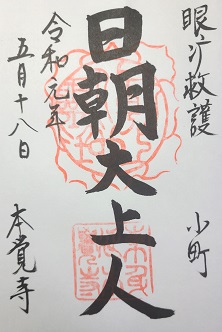 眼病救護
小町
日朝大上人
令和元年
五月十八日
本覚寺